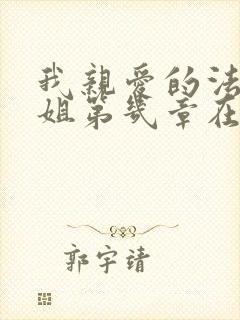 我親愛的法
姐第幾章在
郭宇靖